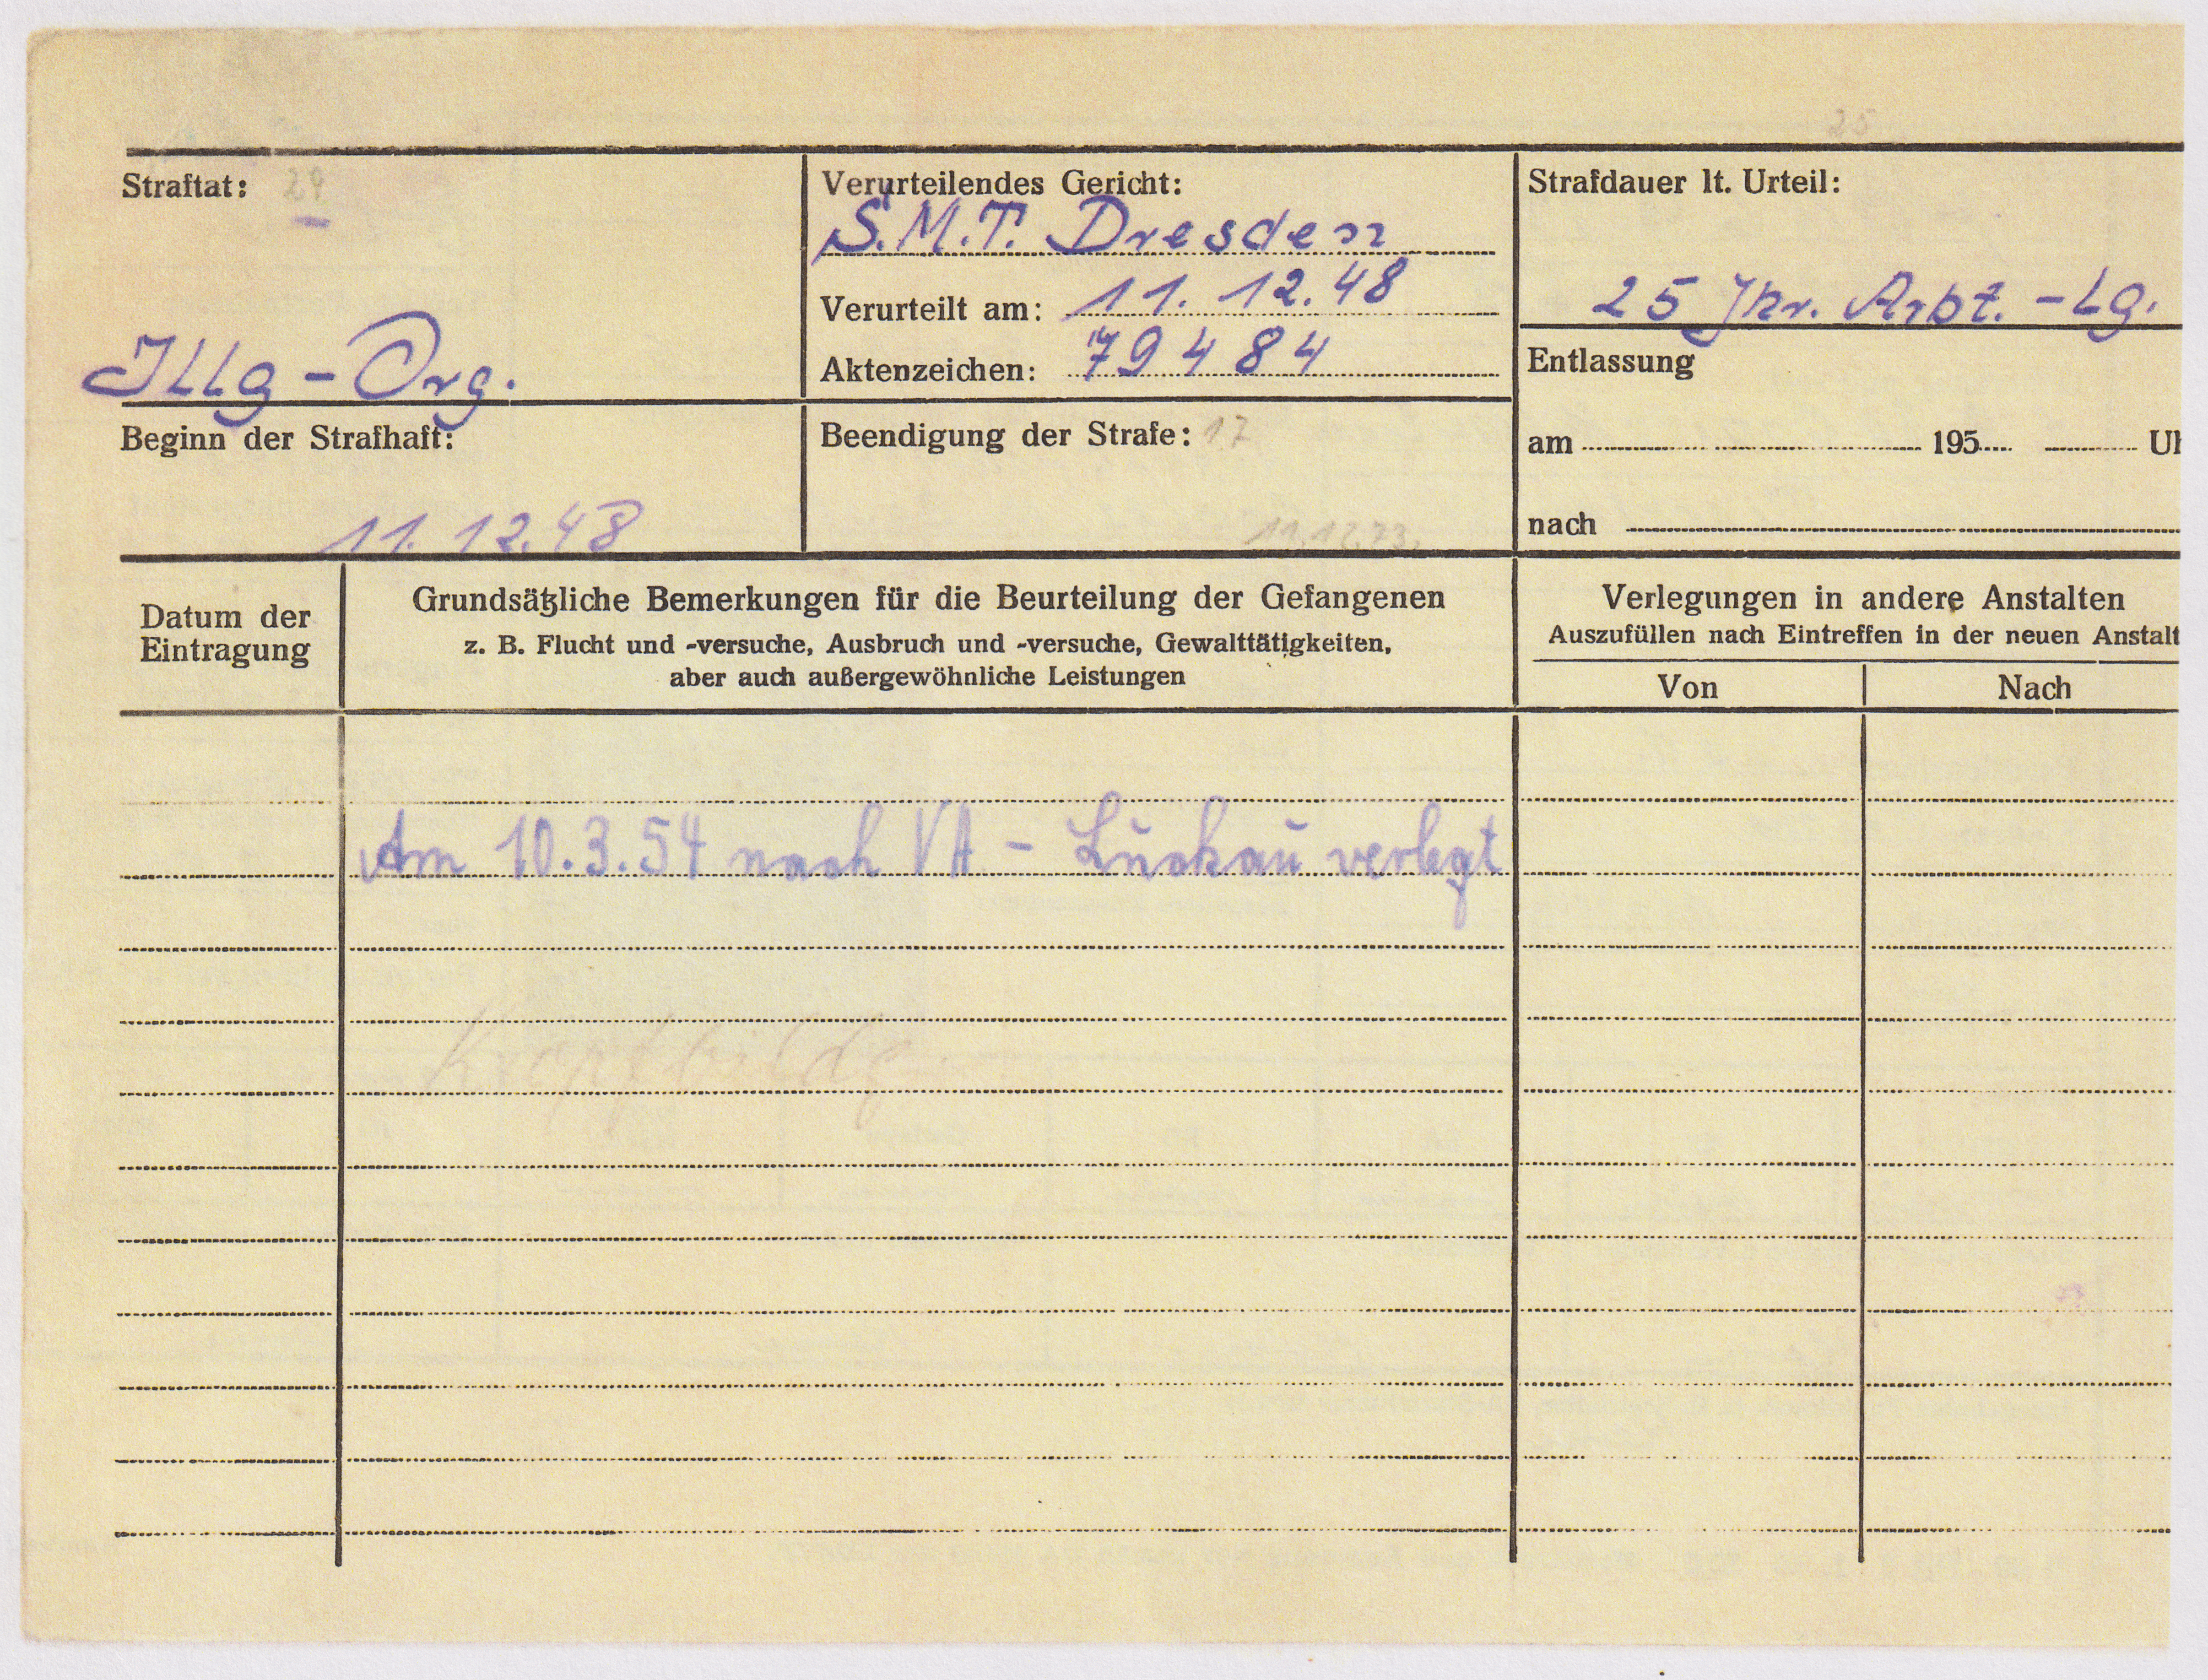 25
Straftat: 29
Illg - Org.
Verurteilendes Gericht:
S.M.T. Dresden
Verurteilt am: 11. 12. 48
Aktenzeichen: 79484
Strafdauer lt. Urteil:
25 Jhr. Arbt. - Lg.
Beginn der Strafhaft:
11. 12. 48
Beendigung der Strafe: 17
11.12.73.
Entlassung
am 195
nach
Datum der
Eintragung
Grundsätzliche Bemerkungen für die Beurteilung der Gefangenen
z. B. Flucht und -versuche, Ausbruch und -versuche, Gewalttätigkeiten,
aber auch außergewöhnliche Leistungen
Verlegungen in andere Anstalten
Auszufüllen nach Eintreffen in der neuen Anstalt
Von
Nach
Am 10.3.54 nach VA - Luckau verlegt